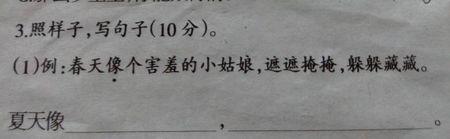 3.照样子,写句子(10分)。
(1)例:春天像个害羞的小姑娘,遮遮掩掩,躲躲藏藏。
夏天像____________,__________________。